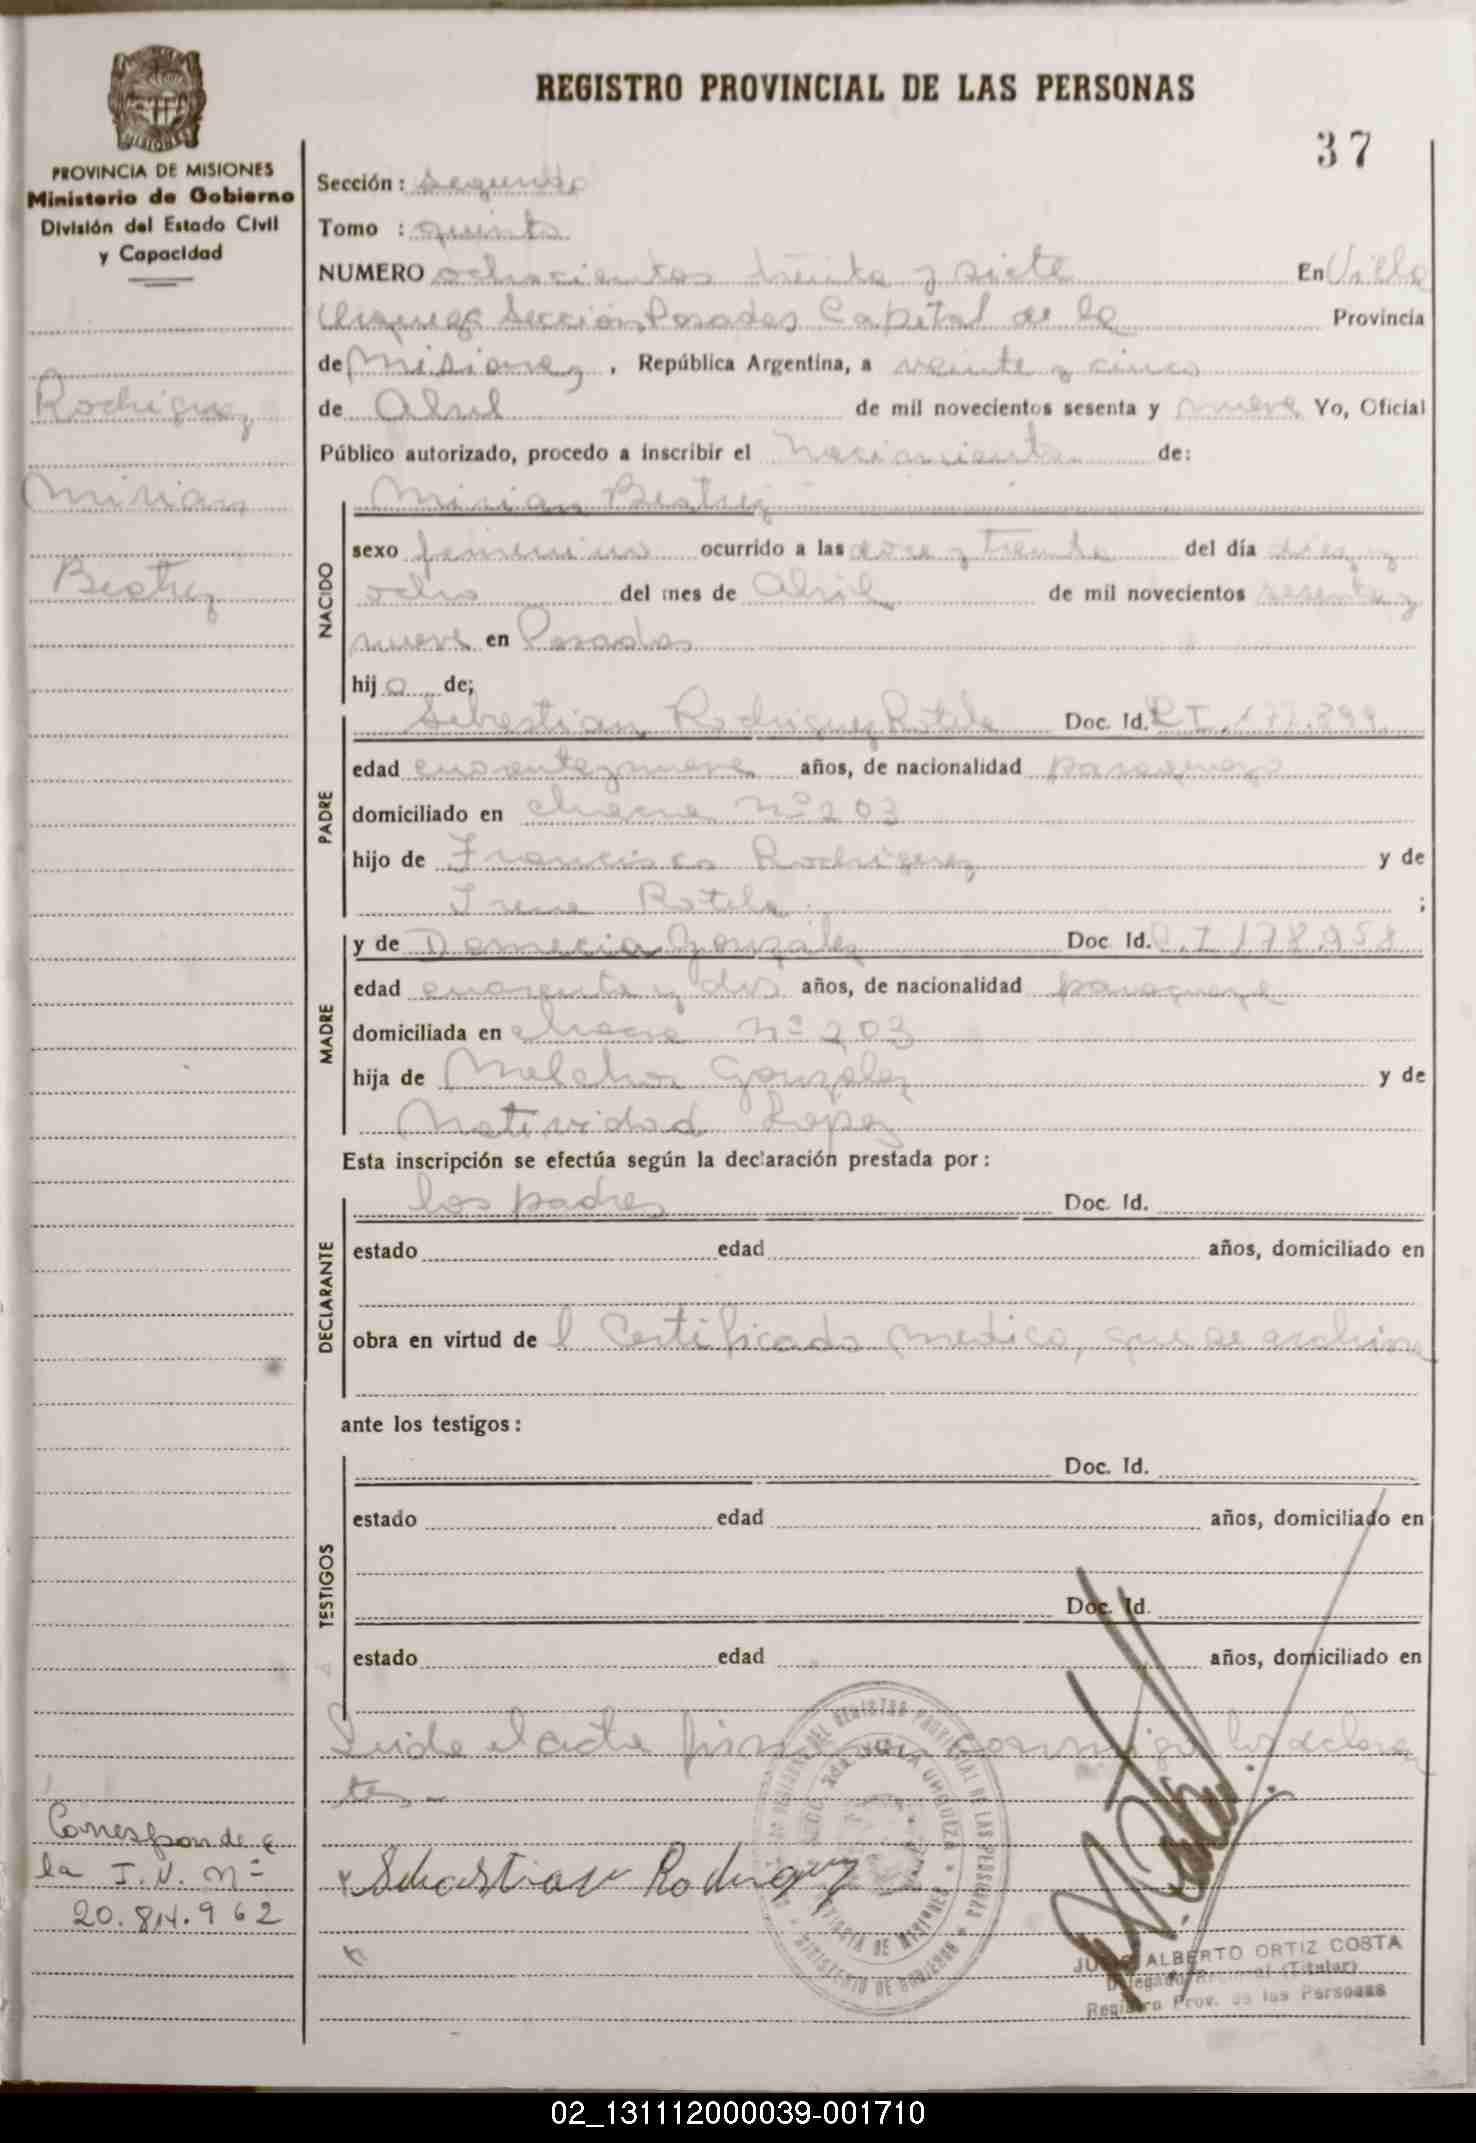 REGISTRO PROVINCIAL DE LAS PERSONAS
37
MISIONES
PROVINCIA DE MISIONES
Ministerio de Gobierno
División del Estado Civil
y Capacidad
Rodriguez
Mirian
Beatriz
Corresponde a
la I.N. Nº
Sección: segunda
Tomo : quinto
NUMERO ochocientos treinta y siete En Villa
Urquiza Sección Posadas Capital de la Provincia
de Misiones, República Argentina, a veinte y cinco
de Abril de mil novecientos sesenta y nueve Yo, Oficial
Público autorizado, procedo a inscribir el Nacimiento de:
NACIDO
Mirian Beatriz
sexo femenino ocurrido a las doce y treinta del día diez y
ocho del mes de Abril de mil novecientos sesenta y
nueve en Posadas
hij a de;
PADRE
Sebastian Rodriguez Rotela Doc. Id. C.I. 177.899
edad cuarenta y nueve años, de nacionalidad paraguayo
domiciliado en chacra Nº 203
hijo de Francisco Rodriguez y de
Irene Rotela ;
MADRE
y de Demecia González Doc Id. C.I 178.958
edad cuarenta y dos años, de nacionalidad paraguaya
domiciliada en chacra nº 203
hija de Melchor González y de
Natividad Lopez
Esta inscripción se efectúa según la declaración prestada por:
DECLARANTE
los padres Doc. Id.
estado edad años, domiciliado en
obra en virtud de l Certificado medico, que se archiva
ante los testigos:
TESTIGOS
Doc. Id.
estado edad años, domiciliado en
Doc. Id.
estado edad años, domiciliado en
Leida el acta firman conmigo los declaran
tes.-
Sebastian Rodriguez
REGISTRO PROVINCIAL DE LAS PERSONAS
VILLA URQUIZA
PROVINCIA DE MISIONES
MINISTERIO DE GOBIERNO
JULIO ALBERTO ORTIZ COSTA
Delegado Regional (Titular)
Registro Prov. de las Personas
02_131112000039-001710